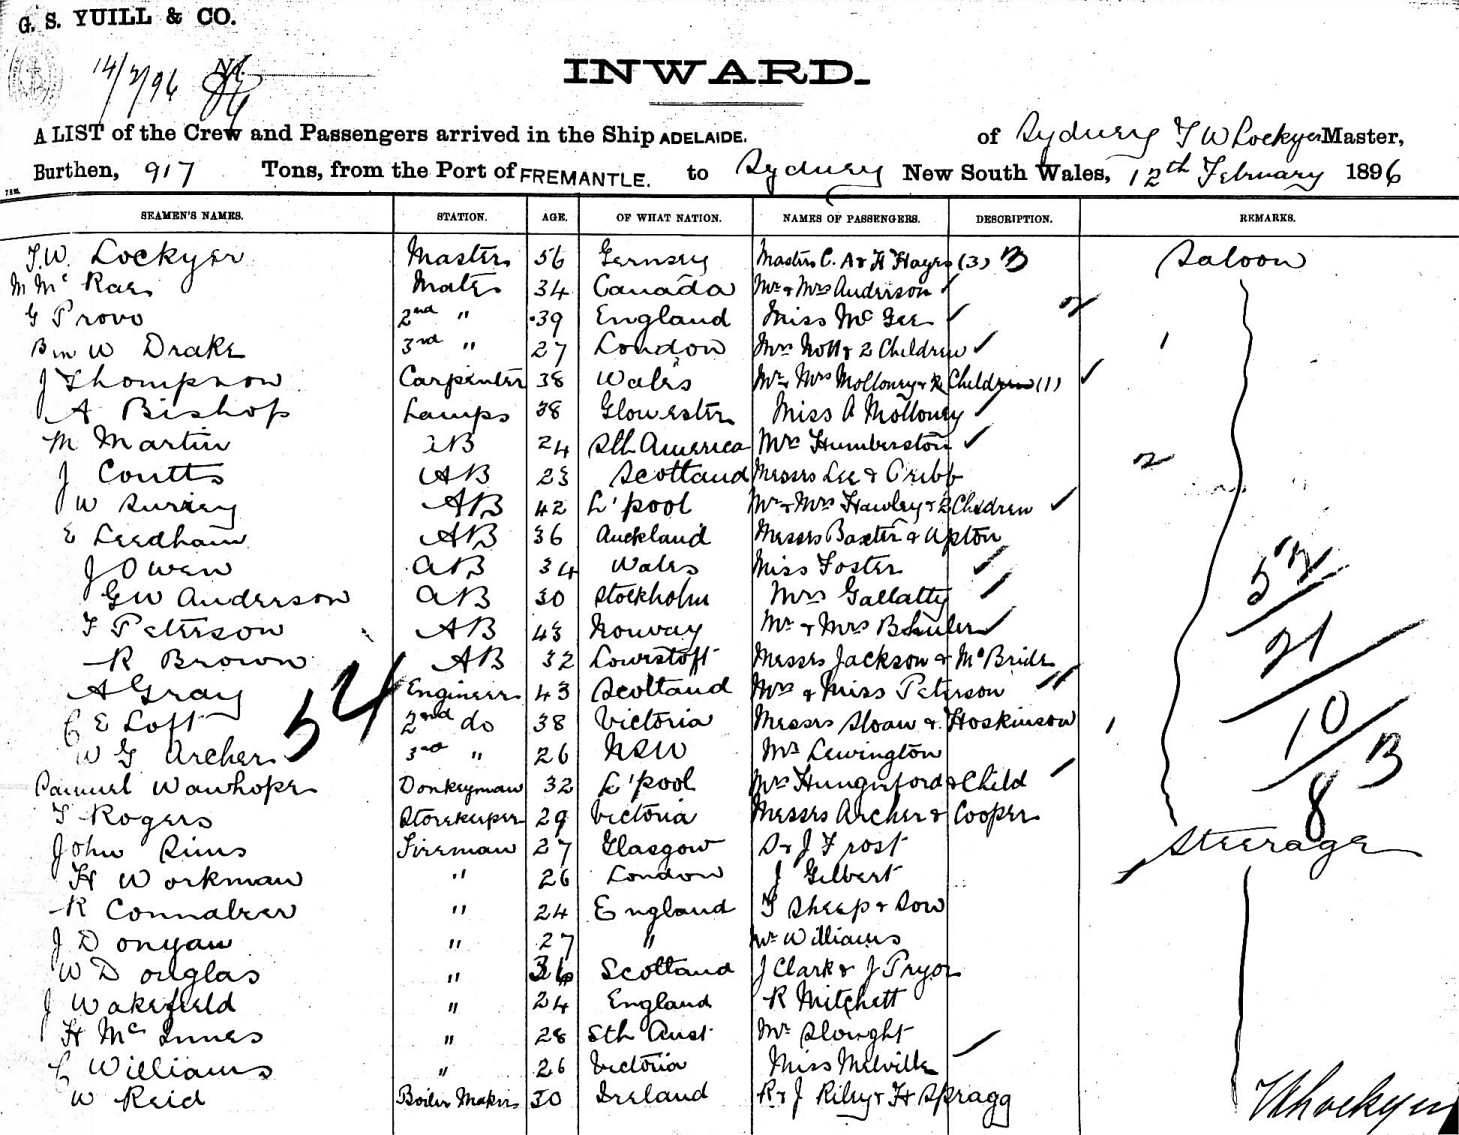 G. S. YUILL & CO.
14/2/96
INWARD.
A LIST of the Crew and Passengers arrived in the Ship ADELAIDE. of Sydney T W Lockyer Master,
Burthen, 917 Tons, from the Port of FREMANTLE. to Sydney New South Wales, 12th February 1896
SEAMEN'S NAMES. STATION. AGE. OF WHAT NATION. NAMES OF PASSENGERS. DESCRIPTION. REMARKS.
T.W. Lockyer Master 56 Gernsey Masters C. A & H Hayes (3) B Saloon
M McRae Mate 34 Canada Mr & Mrs Anderson
G Provo 2nd " 39 England Miss McGee
Bm W Drake 3rd " 27 London Mrs Nott & 2 Children 1
J Thompson Carpenter 38 Wales Mr & Mrs Molloney & 2 Children (1)
A Bishop Lamps 38 Glowester Miss A Molloney
M Martin AB 24 Sth America Mrs Humberston
J Coutts AB 23 Scotland Messrs Lee & Cribb 2
W Surrey AB 42 L'pool Mr & Mrs Hawley & 2 Children
E Leedham AB 36 Auckland Messrs Baxter & Upton
J Owen AB 34 Wales Miss Foster 53
G W Anderson AB 30 Stockholm Mrs Gallatty
F Peterson AB 43 Norway Mr & Mrs 21
R Brown AB 32 Lowestoft Messrs Jackson & McBride
A Gray Engineer 43 Scotland Mrs & Miss Peterson
C E Loft 2nd do 38 Victoria Messrs Sloan & Hoskinson 10
54
W G Archer 3rd " 26 NSW Mr Lewington B
Samuel Wawhope Donkeyman 32 L'pool Mrs Hungerford & Child 8
T Rogers Storekeeper 29 Victoria Messrs Archer & Cooper
John Sims Fireman 27 Glasgow S & J Frost Steerage
H Workman " 26 London J Gilbert
R Connabeer " 24 England T Sheep & Son
J Donyan " 27 " Mr Williams
W Douglas " 36 Scotland J Clark & J Pryor
J Wakefield " 24 England R Mitchett
H McInnes " 28 Sth Aust Mr Slought
C Williams " 26 Victoria Miss Melville
W Reid Boiler Maker 30 Ireland R & J Riley & H Spragg
TWLockyer